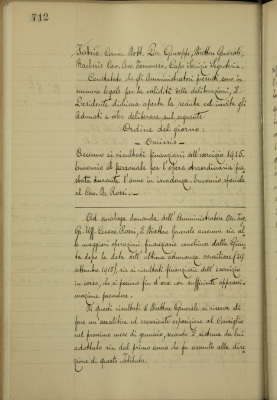 712
Comm. Dott. Don Giuseppe, Direttore Generale;
Cav. Avv. Tommaso, Capo Servizio Segreteria.
Constatato che gli Amministratori presenti sono in
numero legale per la validità delle deliberazioni, il
Presidente dichiara aperta la seduta ed invita gli
adunati a voler deliberare sul seguente
Ordine del giorno:
- Omissis -
ai risultati finanziari dell'esercizio 1915.
Encomio al personale per l'opera straordinaria pre-
stata durante l'anno in scadenza: encomio speciale
al Cav. De Rossi. -
Ad analoga domanda dell'Amministratore On. Avv.
Gr. Uff. Cesare Rossi, il Direttore Generale accenna sia al-
le maggiori operazioni finanziarie concluse dalla Giun-
ta dopo la data dell'ultima adunanza consiliare (29
settembre 1915), sia ai risultati finanziari dell'esercizio
in corso, che si possono fin d'ora con sufficiente approssi-
mazione prevedere.
Di questi risultati il Direttore Generale si riserva di
fare un'analitica ed esauriente esposizione al Consiglio
nel prossimo mese di gennaio, secondo il sistema da lui
adottato sin dal primo anno che fu assunto alla dire-
zione di questo Istituto.